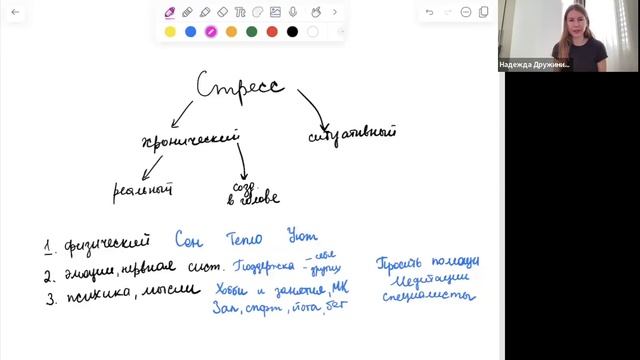 Надежда Дружини...
Стресс
хронический ситуативный
реальный созд. в голове
1. физический Сон Тепло Уют
2. эмоции, нервная сист. Поддержка – себя – других
3. психика, мысли Хобби и занятия, МК
Зал, спорт, йога, бег
Просить помощи
Медитации
специалисты